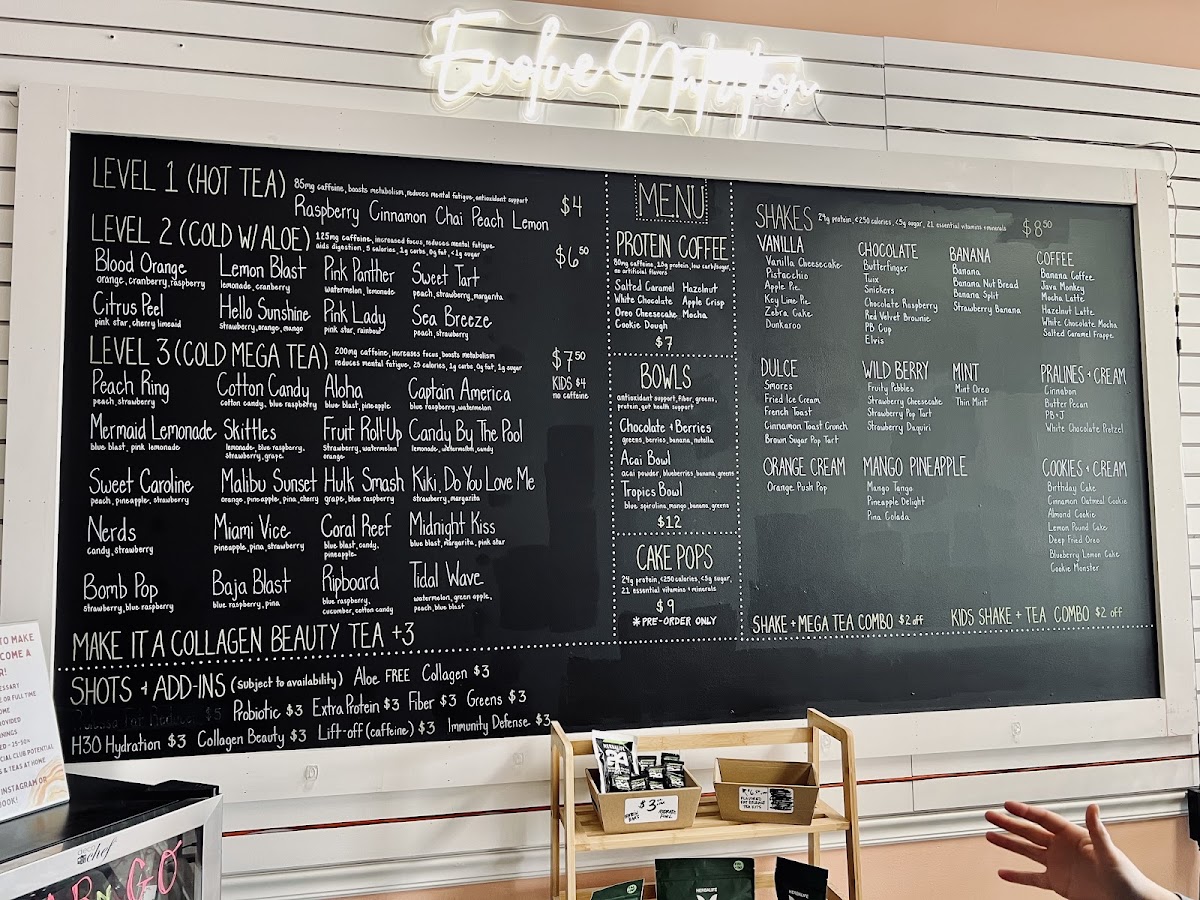 Evolve Nutrition
LEVEL 1 (HOT TEA) 85mg caffeine, boosts metabolism, reduces mental fatigue, antioxidant support
Raspberry Cinnamon Chai Peach Lemon $4
LEVEL 2 (COLD W/ALOE) 125mg caffeine, increased focus, reduces mental fatigue
aids digestion, 5 calories, 1g carbs, 0g fat, <1g sugar $6.50
Blood Orange Lemon Blast Pink Panther Sweet Tart
orange, cranberry, raspberry lemonade, cranberry watermelon, lemonade peach, strawberry, margarita
Citrus Peel Hello Sunshine Pink Lady Sea Breeze
pink star, cherry limeaid strawberry, orange, mango pink star, rainbow peach, strawberry
LEVEL 3 (COLD MEGA TEA) 200mg caffeine, increases focus, boosts metabolism $7.50
reduces mental fatigue, 25 calories, 1g carbs, 0g fat, 1g sugar
KIDS $4
no caffeine
Peach Ring Cotton Candy Aloha Captain America
peach, strawberry cotton candy, blue raspberry blue blast, pineapple blue raspberry, watermelon
Mermaid Lemonade Skittles Fruit Roll-Up Candy By The Pool
blue blast, pink lemonade lemonade, blue raspberry, strawberry, watermelon lemonade, watermelon, candy
strawberry, grape orange
Sweet Caroline Malibu Sunset Hulk Smash Kiki, Do You Love Me
peach, pineapple, strawberry orange, pineapple, pina, cherry grape, blue raspberry strawberry, margarita
Nerds Miami Vice Coral Reef Midnight Kiss
candy, strawberry pineapple, pina, strawberry blue blast, candy, blue blast, margarita, pink star
pineapple
Bomb Pop Baja Blast Ripboard Tidal Wave
strawberry, blue raspberry blue raspberry, pina blue raspberry, watermelon, green apple,
cucumber, cotton candy peach, blue blast
MAKE IT A COLLAGEN BEAUTY TEA +3
SHOTS + ADD-INS (subject to availability) Aloe FREE Collagen $3
$5 Probiotic $3 Extra Protein $3 Fiber $3 Greens $3
H30 Hydration $3 Collagen Beauty $3 Lift-off (caffeine) $3 Immunity Defense $3
MENU
PROTEIN COFFEE
80mg caffeine, 15g protein, low carb/sugar,
no artificial flavors
Salted Caramel Hazelnut
White Chocolate Apple Crisp
Oreo Cheesecake Mocha
Cookie Dough
$7
BOWLS
antioxidant support, fiber, greens,
protein, gut health support
Chocolate + Berries
greens, berries, banana, nutella
Acai Bowl
acai powder, blueberries, banana, greens
Tropics Bowl
blue spirolina, mango, banana, greens
$12
CAKE POPS
24g protein, <250 calories, <5g sugar,
21 essential vitamins + minerals
$9
*PRE-ORDER ONLY
SHAKES 24g protein, <250 calories, <5g sugar, 21 essential vitamins + minerals $8.50
VANILLA
Vanilla Cheesecake
Pistacchio
Apple Pie
Key Lime Pie
Zebra Cake
Dunkaroo
CHOCOLATE
Butterfinger
Twix
Snickers
Chocolate Raspberry
Red Velvet Brownie
PB Cup
Elvis
BANANA
Banana
Banana Nut Bread
Banana Split
Strawberry Banana
COFFEE
Banana Coffee
Java Monkey
Mocha Latte
Hazelnut Latte
White Chocolate Mocha
Salted Caramel Frappe
DULCE
Smores
Fried Ice Cream
French Toast
Cinnamon Toast Crunch
Brown Sugar Pop Tart
WILD BERRY
Fruity Pebbles
Strawberry Cheesecake
Strawberry Pop Tart
Strawberry Daquiri
MINT
Mint Oreo
Thin Mint
PRALINES + CREAM
Cinnabon
Butter Pecan
PB+J
White Chocolate Pretzel
ORANGE CREAM
Orange Push Pop
MANGO PINEAPPLE
Mango Tango
Pineapple Delight
Pina Colada
COOKIES + CREAM
Birthday Cake
Cinnamon Oatmeal Cookie
Almond Cookie
Lemon Pound Cake
Deep Fried Oreo
Blueberry Lemon Cake
Cookie Monster
SHAKE + MEGA TEA COMBO $2 off
KIDS SHAKE + TEA COMBO $2 off
TO MAKE
COME A
OR FULL TIME
25-50%
CIAL CLUB POTENTIAL
& TEAS AT HOME
INSTAGRAM OR
chef
GO
HERBALIFE
$3
HERBALIFE
HERBALIFE